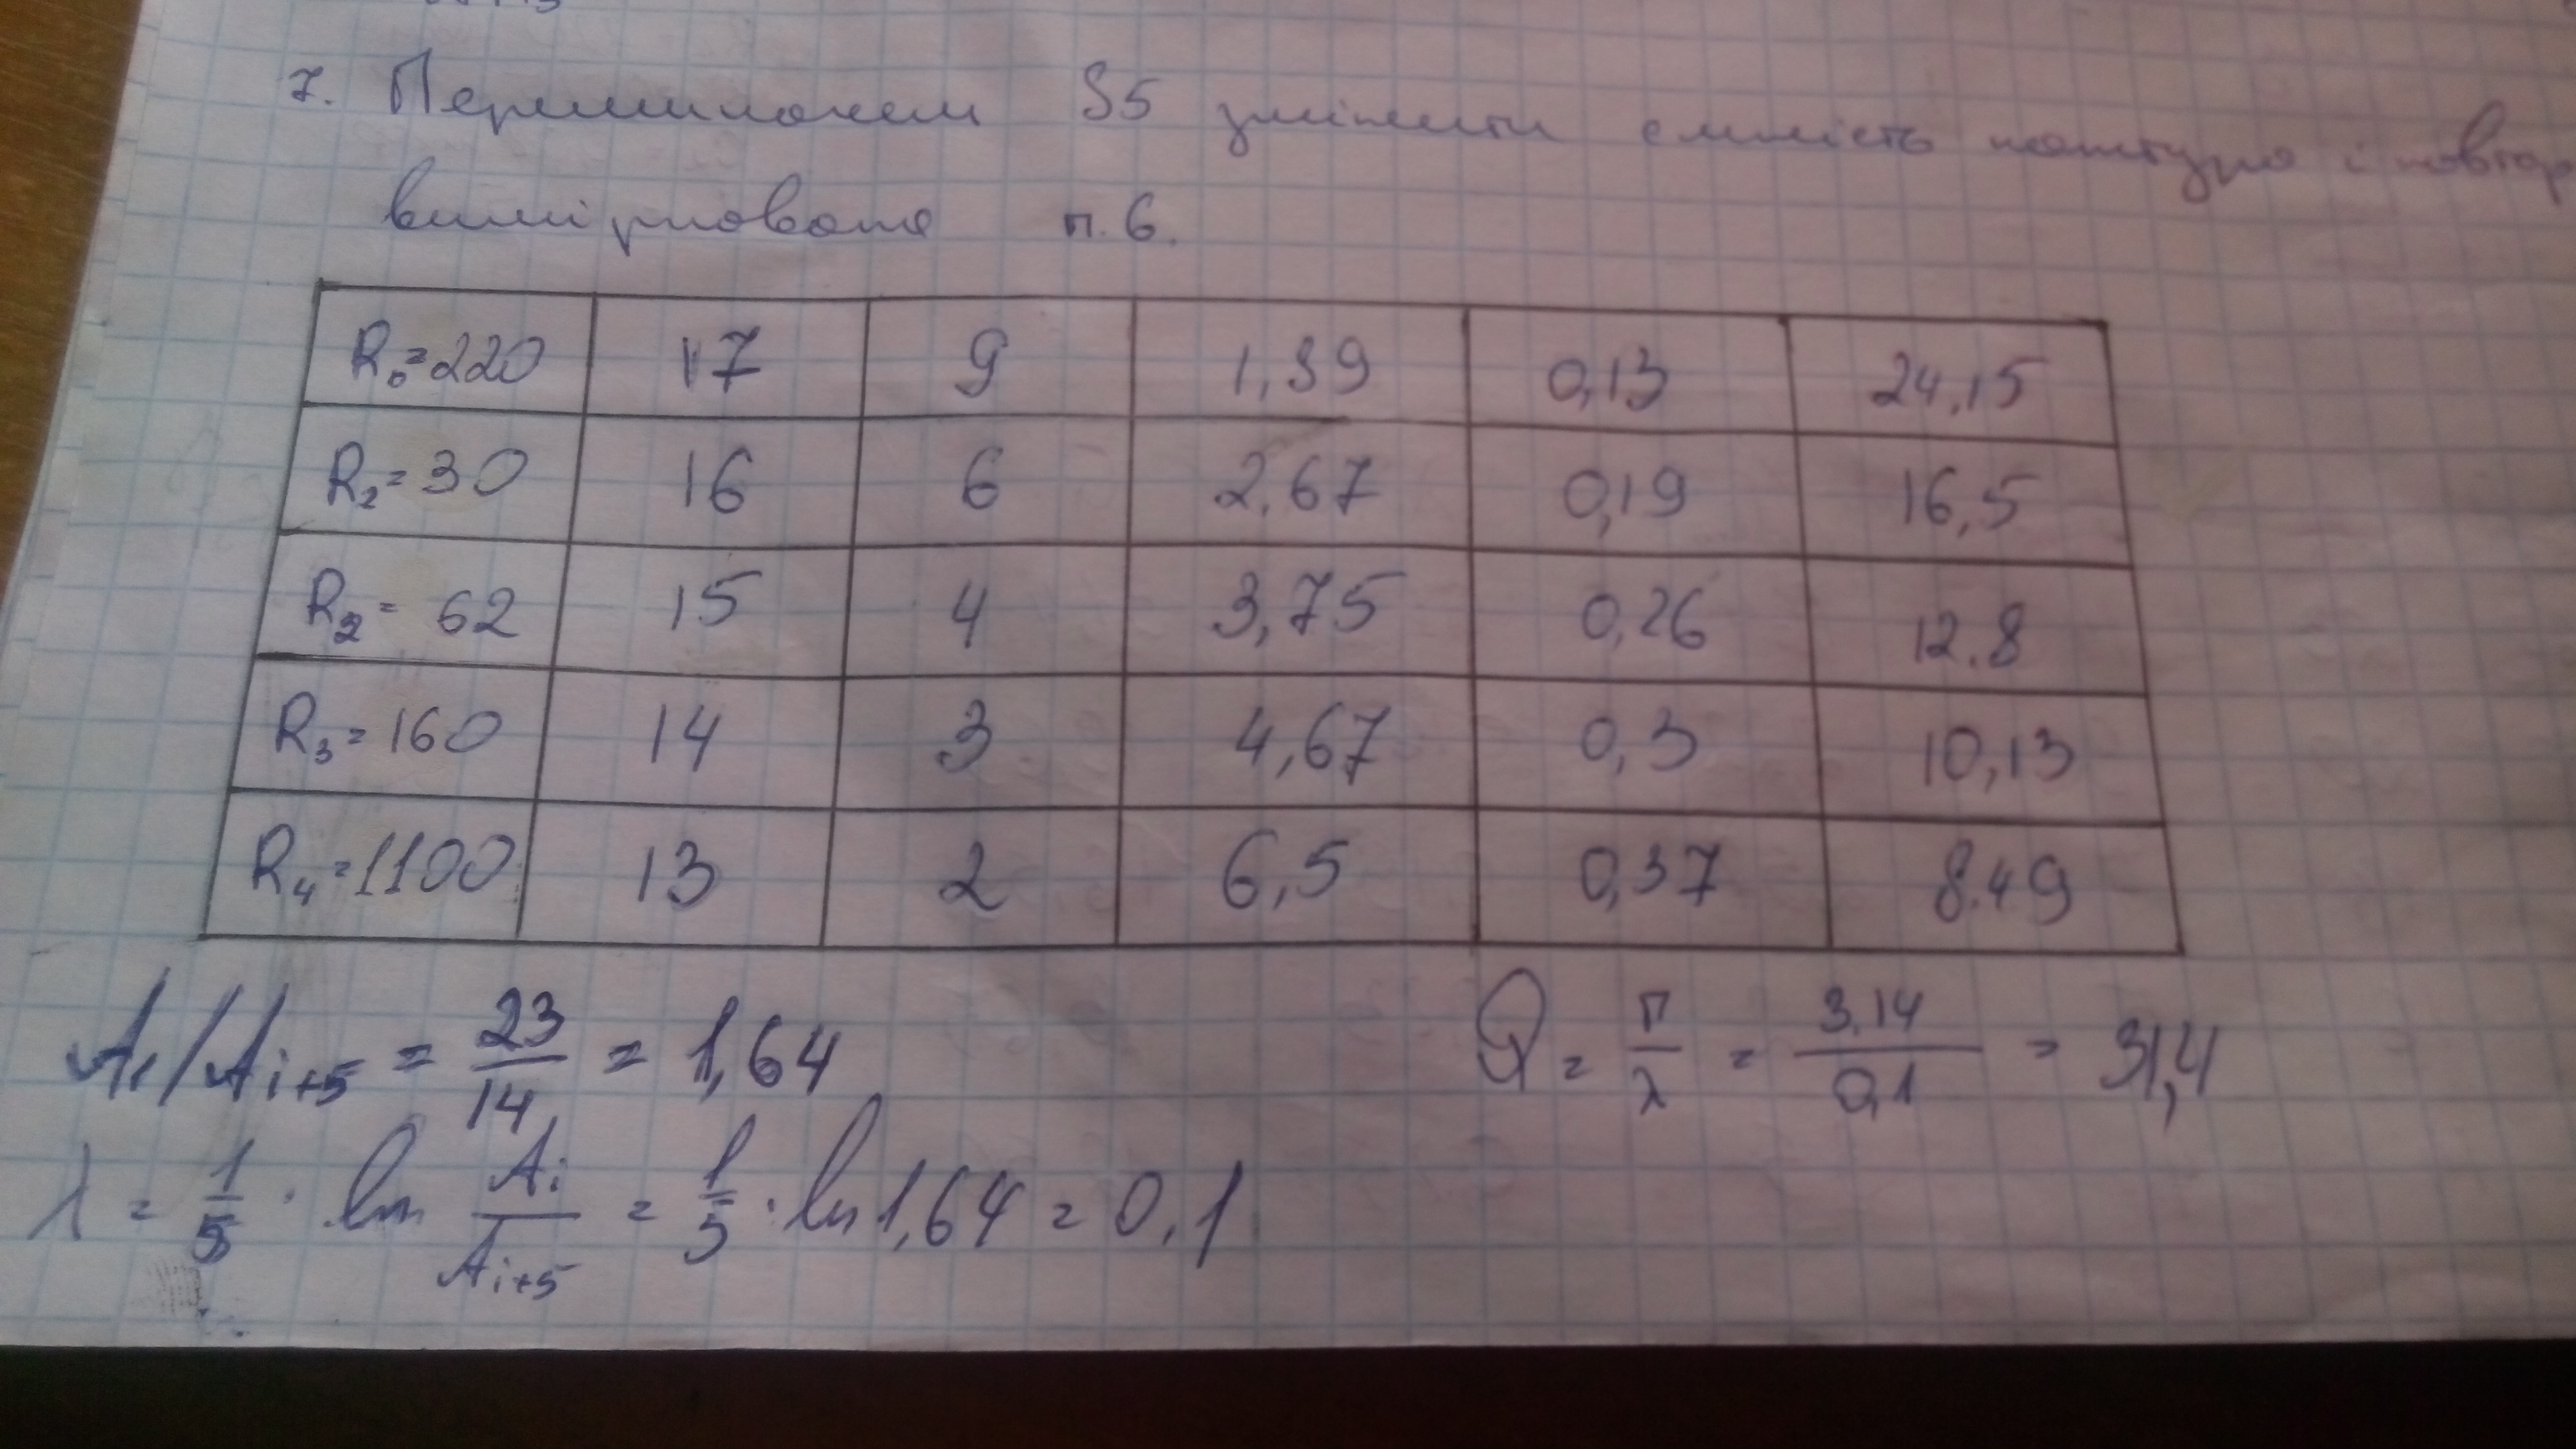 7. Перемикачем S5 змінити ємність контура і повтор
вимірювання п.6.
R₀=220 17 9 1,89 0,13 24,15
R₂=30 16 6 2,67 0,19 16,5
R₂= 62 15 4 3,75 0,26 12.8
R₃=160 14 3 4,67 0,3 10,13
R₄=1100 13 2 6,5 0,37 8.49
Ai/Ai+5 = 23/14 = 1,64 Q = π/λ = 3.14/0,1 = 31,4
λ = 1/5 · ln Ai/Ai+5 = 1/5 · ln 1,64 = 0,1